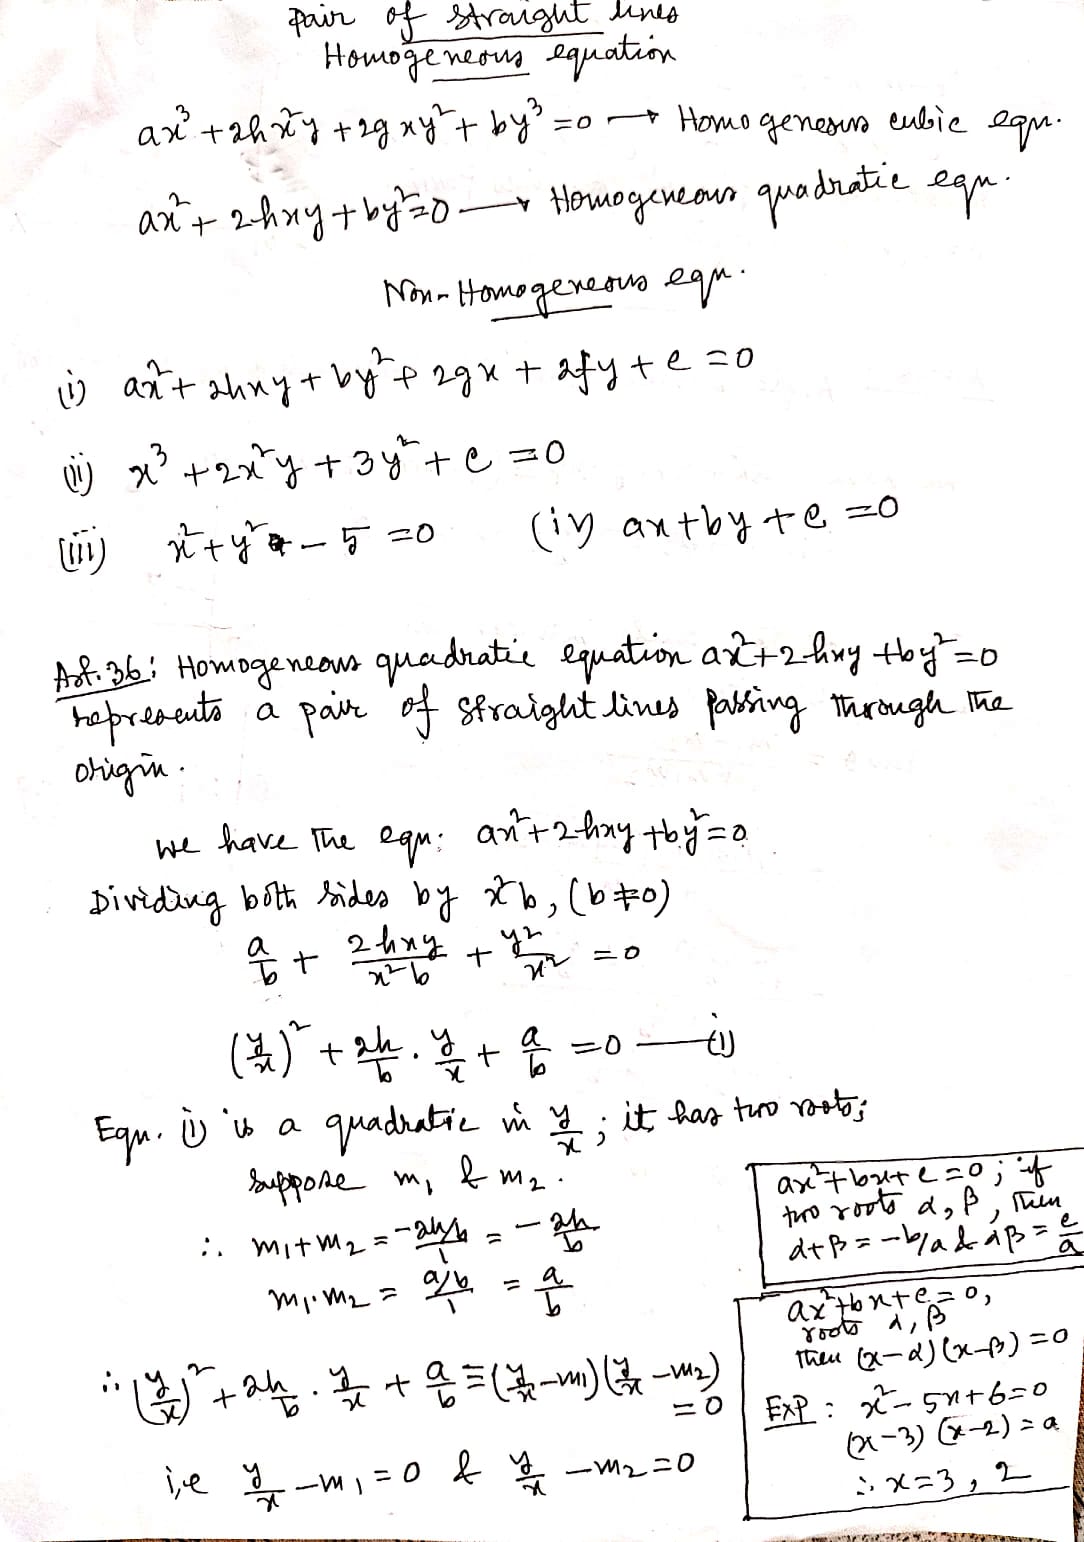 Pair of straight lines
Homogeneous equation
ax³ + 2hx²y + 2gxy² + by³ = 0 → Homogeneous cubic eqn.
ax² + 2hxy + by² = 0 → Homogeneous quadratic eqn.
Non-Homogeneous eqn.
(i) ax² + 2hxy + by² + 2gx + 2fy + c = 0
(ii) x³ + 2x²y + 3y² + c = 0
(iii) x² + y² - 5 = 0 (iv) ax + by + c = 0
Art. 36: Homogeneous quadratic equation ax² + 2hxy + by² = 0
represents a pair of straight lines passing through the
origin.
we have the eqn: ax² + 2hxy + by² = 0
Dividing both sides by x²b, (b ≠ 0)
a/b + 2hxy/x²b + y²/x² = 0
(y/x)² + 2h/b . y/x + a/b = 0 — (i)
Eqn. (i) is a quadratic in y/x ; it has two roots;
suppose m₁ & m₂.
∴ m₁ + m₂ = (-2h/b)/1 = - 2h/b
m₁.m₂ = (a/b)/1 = a/b
∴ (y/x)² + 2h/b . y/x + a/b ≡ (y/x - m₁)(y/x - m₂)
= 0
i,e y/x - m₁ = 0 & y/x - m₂ = 0
ax² + bx + c = 0 ; if
two roots α, β, Then
α + β = -b/a & αβ = c/a
ax² + bx + c = 0,
roots α, β
Then (x - α)(x - β) = 0
EXP : x² - 5x + 6 = 0
(x - 3)(x - 2) = 0
∴ x = 3, 2